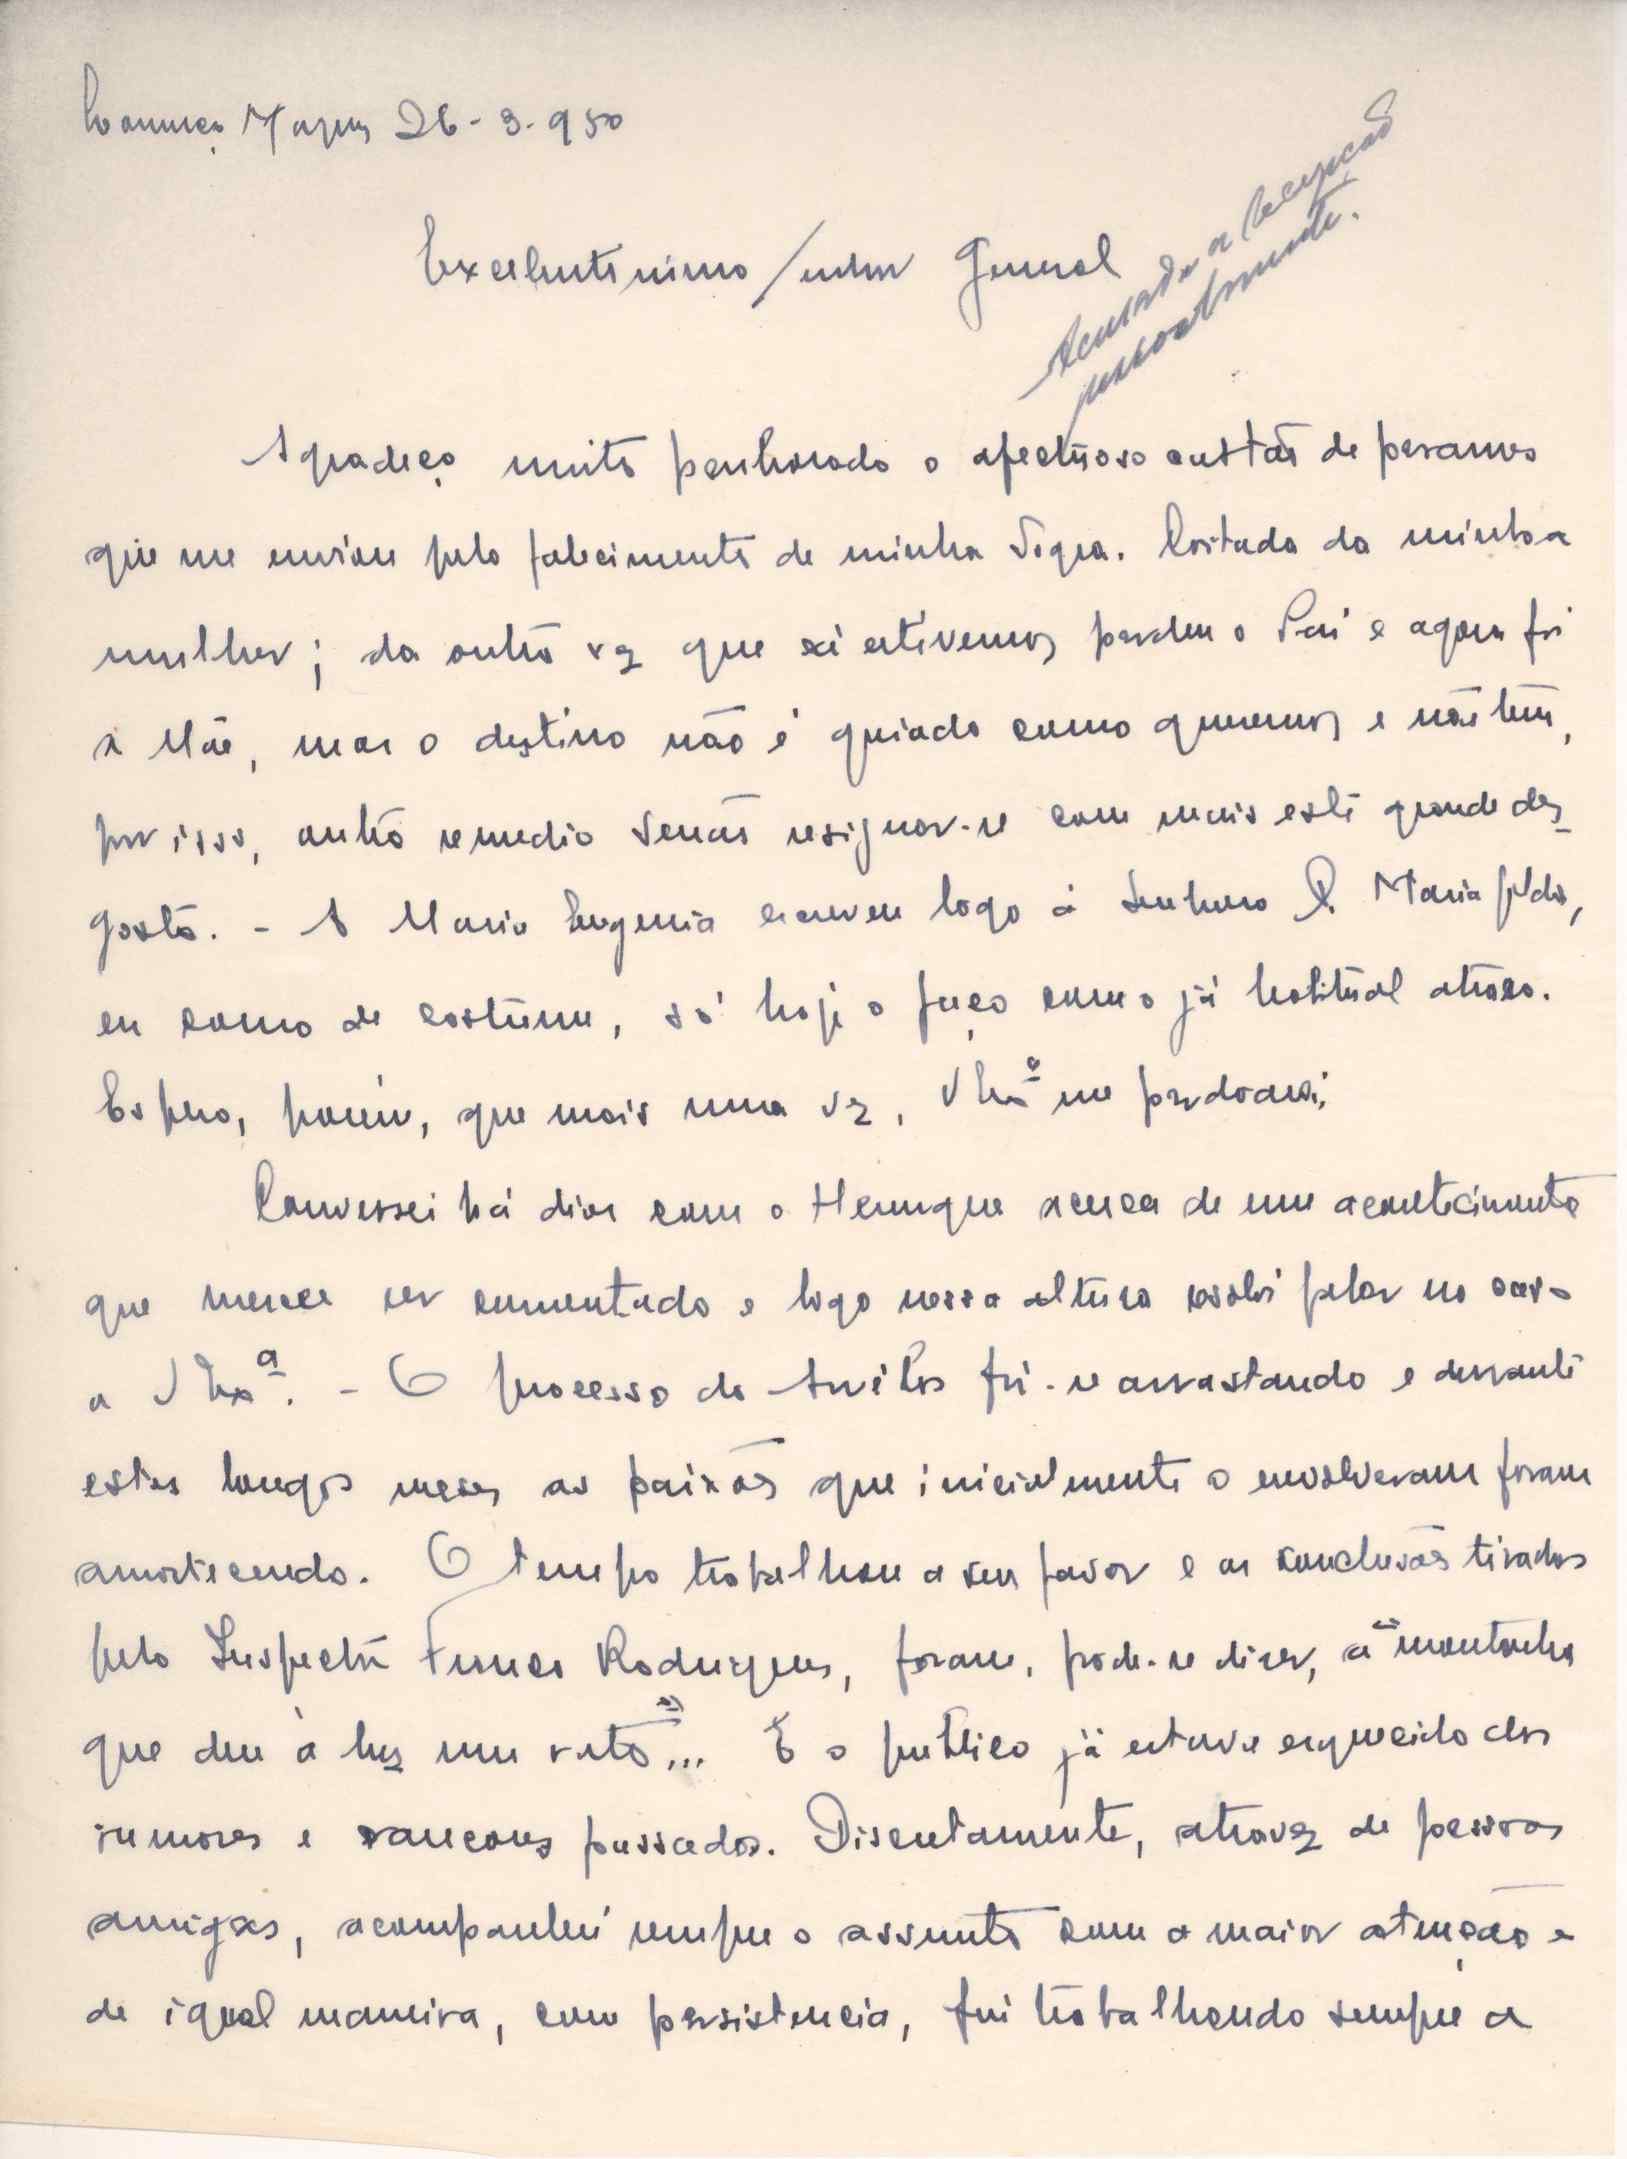 Lourenço Marques 26-3-950
Excelentissimo Senhor General
Acusada a recepção
pessoalmente.
Agradeço muito penhorado o afectuoso cartão de pesames
que me enviou pelo falecimento de minha Sogra. Coitada da minha
mulher; da outra vez que cá estivemos perdeu o Pai e agora foi
a Mãe, mas o destino não é guiado como queremos e não tem,
por isso, outro remedio senão resignar-se com mais este grande des-
gosto. - A Maria Eugenia escreveu logo á Senhora D. Maria
eu como de costume, só hoje o faço com o já habitual atraso.
Espero, porém, que mais uma vez, V Exª me perdoará.
Conversei há dias com o Henrique acerca de um acontecimento
que merece ser comentado e logo nessa altura resolvi falar no caso
a V Exª. - O processo do foi-se arrastando e durante
estes longos meses as paixões que inicialmente o envolveram foram
amortecendo. O tempo trabalhou a seu favor e as conclusões tiradas
pelo Inspector Franco Rodrigues, foram, pode-se dizer, a "montanha
que deu á luz um rato"... E o publico já estava esquecido dos
rumores e rancores passados. Discretamente, atravez de pessoas
amigas, acompanhei sempre o assunto com a maior atenção e
de igual maneira, com persistencia, fui trabalhando sempre a